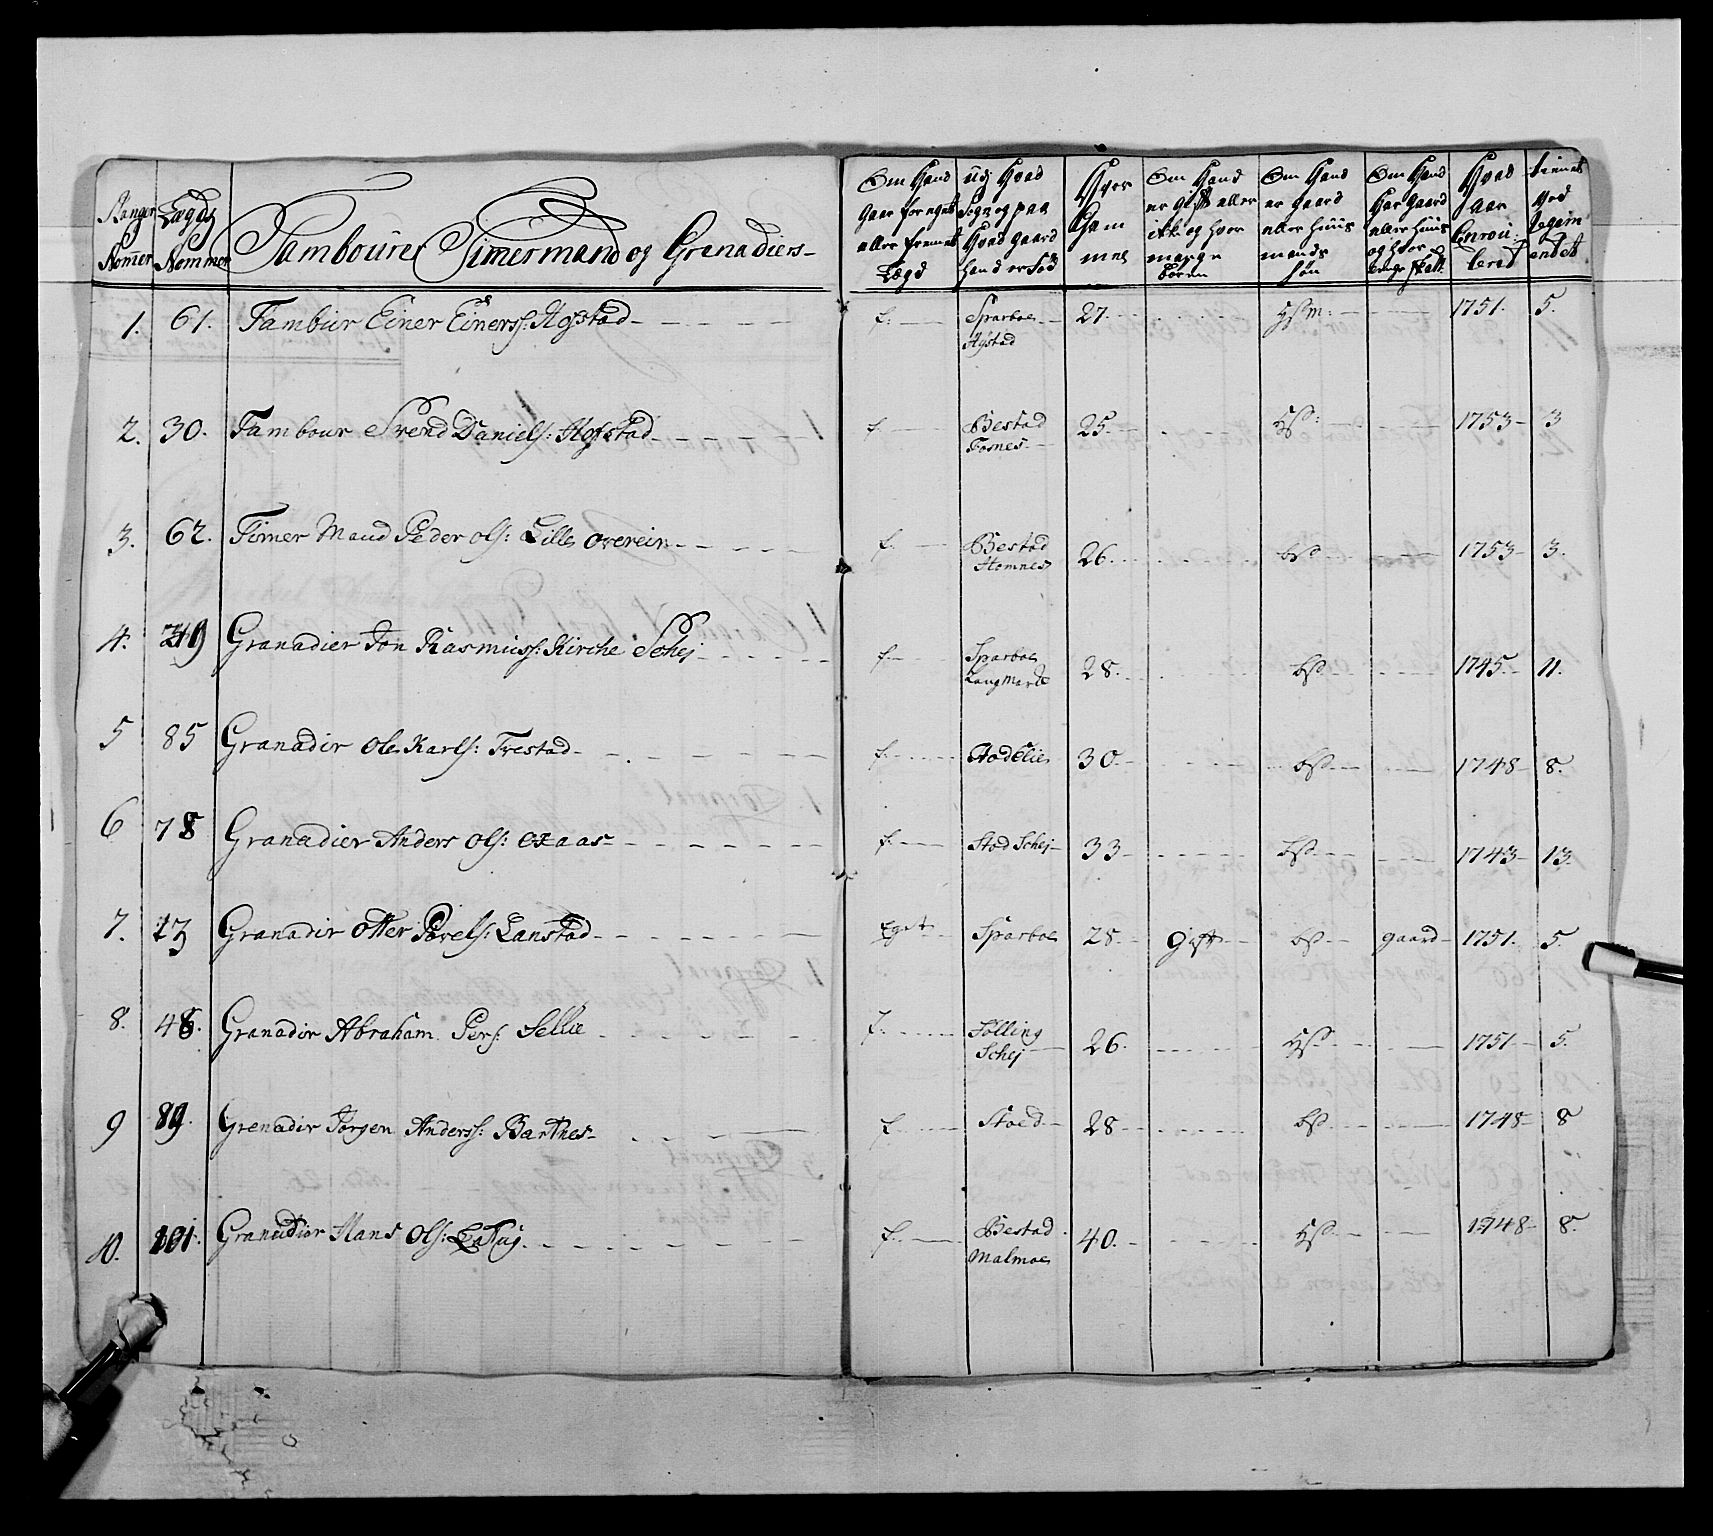 Nomer Nommer Tambourer Timermand og Granadiers
Om Hand gaar for eget eller fremet Lægd
udj Hvad Sogn og paa Hvad gaard hand er Fød
Om Hand er gift eller ikke og hvor mange Børen
Om Hand er gaard eller huus mands søn
Om Hand Har gaard eller huus og hvor
Hvad Aar Enroulerit
tienet ved Regimendet
1. 61. Tambur Einer Einerss: Agstad f: Sparboe Agstad 27. Hsm: 1751. 5.
2. 30. Tambour Svend Daniels: Hofstad f. Bestad Fosnes 25. Hs: 1753 3
3. 62. Timer Mand Peder Ols: Lille Overein f. Bestad Homnes 26. bs 1753 3.
4. Granadier Jon Rasmuss: Kirche Schej f. Sparboe 28. bs 1745. 11.
5 85 Granadir Ole Karls: Trestad f. Stod Elie 30. bs 1748 8.
6 78 Granadier Anders Ols: f. Stod Schej 33 bs 1743 13.
7. 13 Granadir Otter Povels: Lanstad Eget Sparboe 28 gift bs gaard 1751. 5.
8. Granadir Abraham Pers: Sellie f. Schej 26. Hs 1751 5.
9 89. Grenadir Jørgen Anderss: Barthes f. Stoed 28 bs 1748 8
10. 101. Granadier Hans Ols: f. Bestad Malmoe 40. Hs 1748 8.